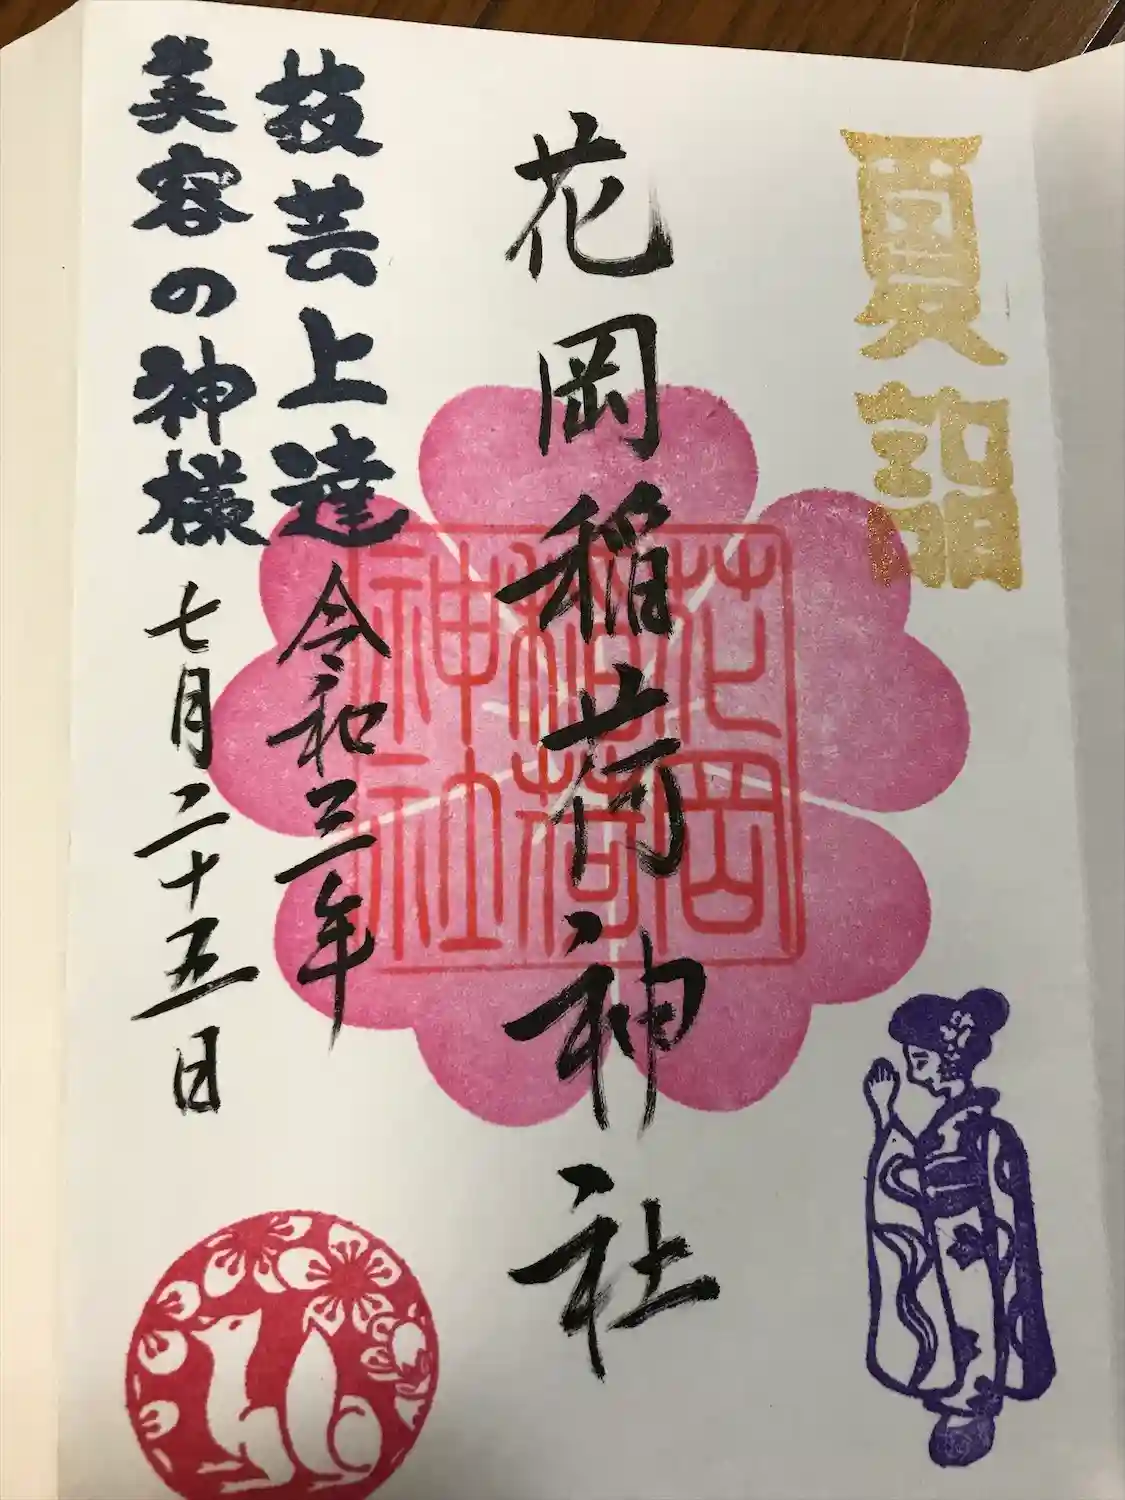 夏詣
花岡稲荷神社
花岡
稲荷
神社
技芸上達
令和三年
美容の神様
七月二十五日